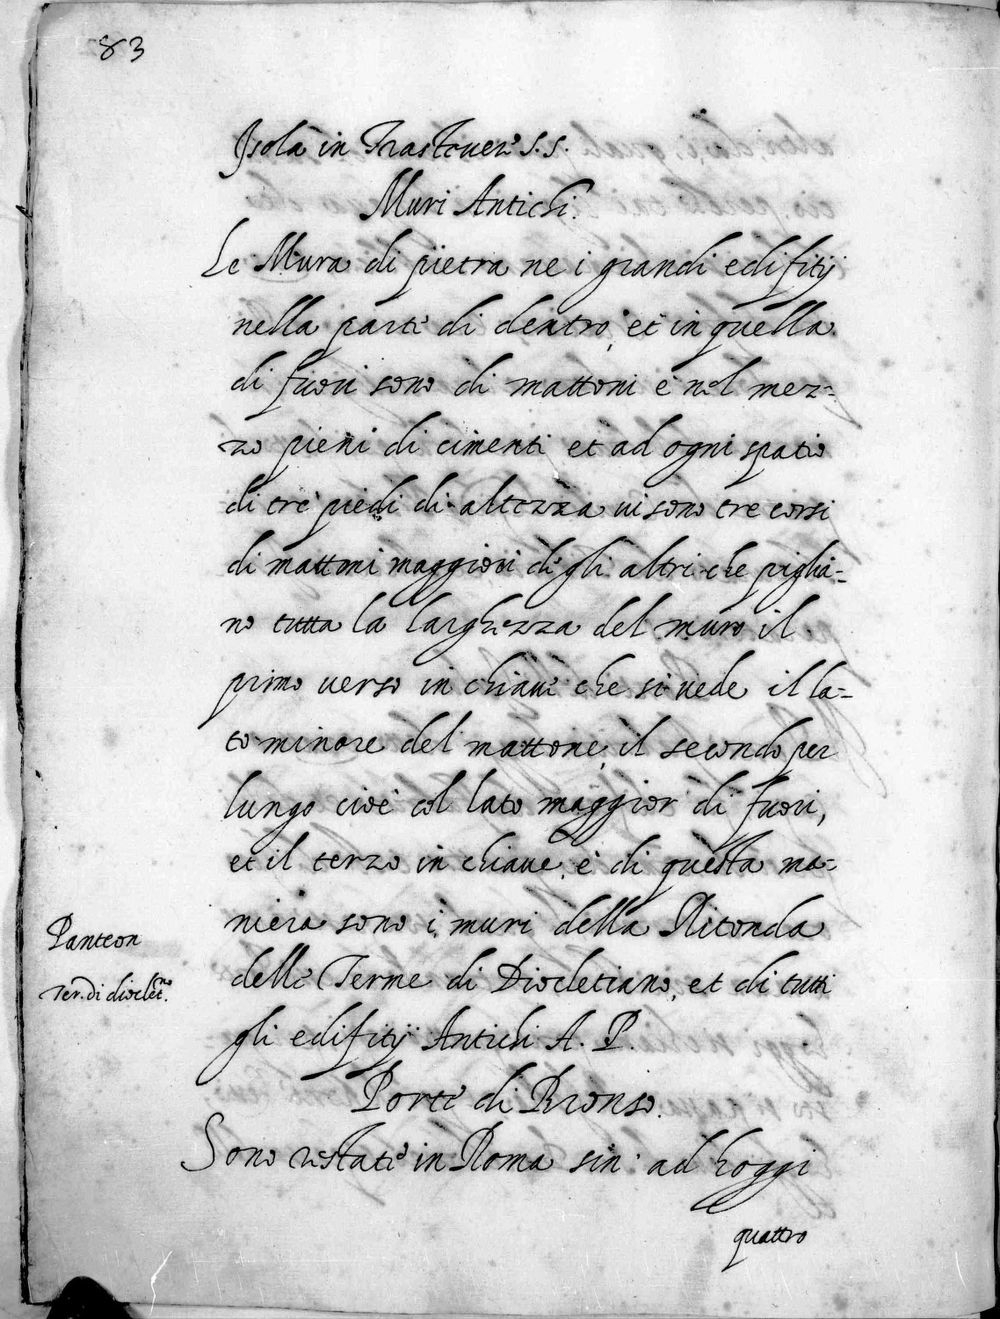 83
Isola in Trasteuere S. S.
Muri Antichi.
Le Mura di pietra ne i grandi edifitij
nella parte di dentro, et in quella
di fuori sono di mattoni e nel mez=
zo pieni di cimenti et ad ogni spatio
di tre piedi di altezza ui sono tre corsi
di mattoni maggiori de gli altri che piglia=
no tutta la larghezza del muro il
primo uerso in chiaue che si uede il la=
to minore del mattone, il secondo per
lungo cioè col lato maggior di fuori,
et il terzo in chiaue, e di questa ma=
niera sono i muri della Ritonda
Panteon
delle Terme di Diocletiano, et di tutti
Ter. di dioclet.no
gli edifitij Antichi A. P.
Porte di Bronso.
Sono restate in Roma sin' ad hoggi
quattro